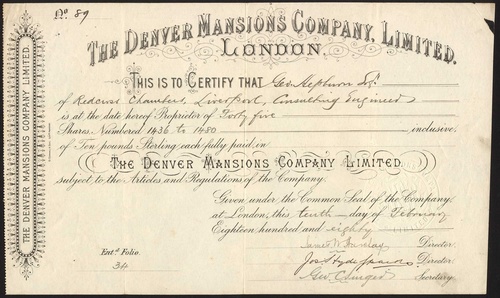 No. 89
THE DENVER MANSIONS COMPANY, LIMITED.
LONDON.
THIS IS TO CERTIFY THAT Geo. Hepburn Esq.
of Redcross Chambers, Liverpool, Consulting Engineer
is at the date hereof Proprietor of Forty five
Shares Numbered 1436 to 1480 inclusive
of Ten pounds Sterling each fully paid, in
THE DENVER MANSIONS COMPANY LIMITED.
subject to the Articles and Regulations of the Company.
Given under the Common Seal of the Company
at London, this tenth day of February
Eighteen hundred and eighty
James W. Director.
Director.
Geo. Secretary.
Entd. Folio.
34
THE DENVER MANSIONS COMPANY LIMITED.